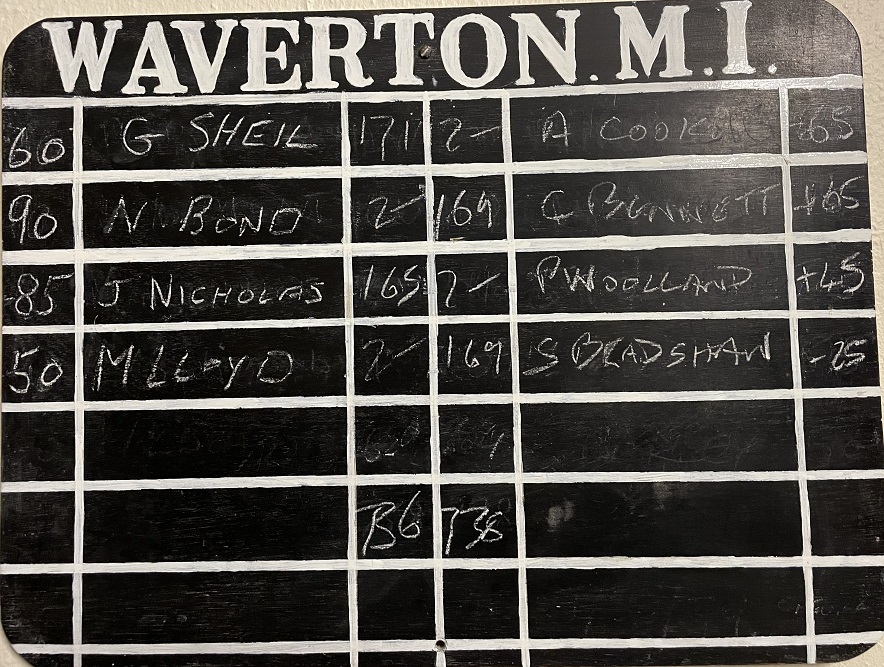 WAVERTON. M.I.
60 G SHEIL 171 2- A COOK -65
90 N BOND 2- 169 C BENNETT +65
-85 J NICHOLAS 165 2- P WOOLLAND +45
50 M LLOYD 2- 169 S BRADSHAW -25
736 738